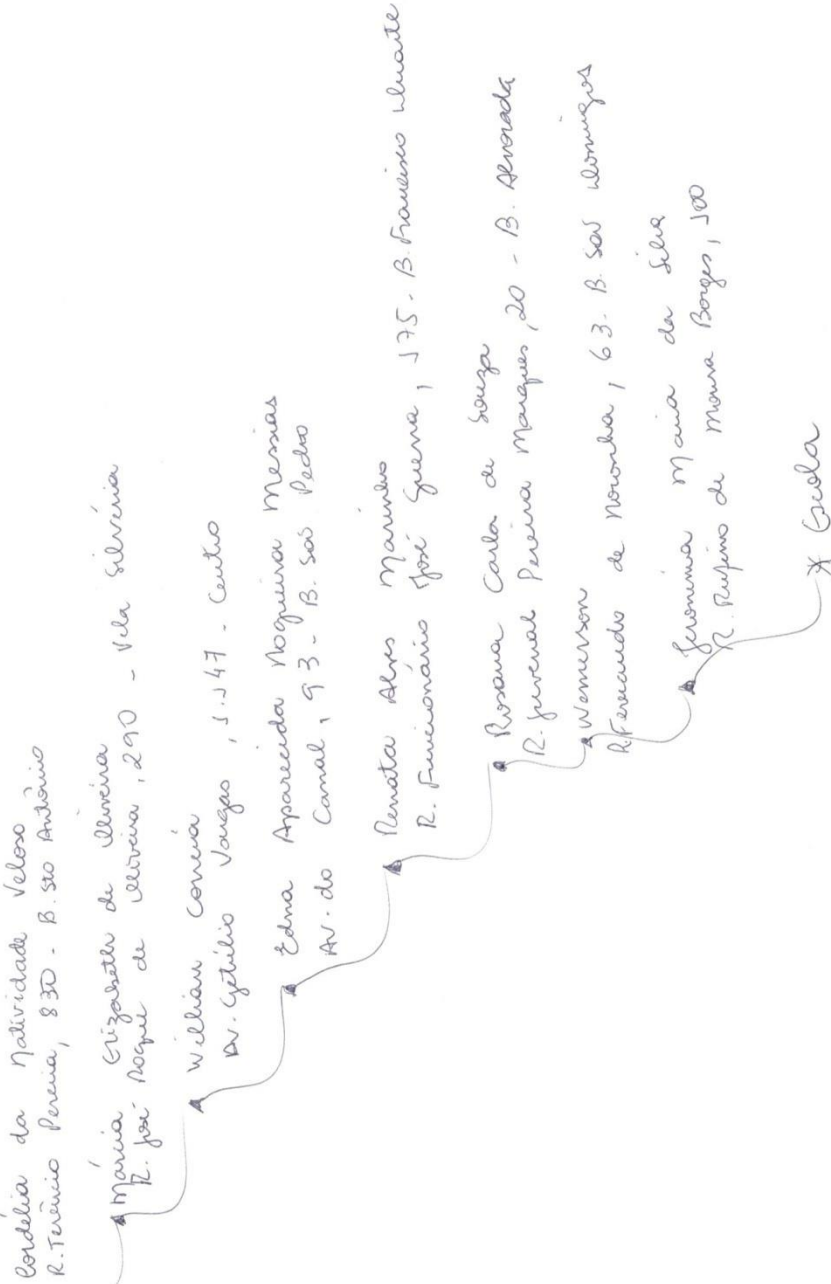 Cordélia da Natividade Veloso
R. Terêncio Pereira, 830 - B. Sto Antônio
Márcia Elizabeth de Oliveira
R. José Roque de Oliveira, 290 - Vila Silvéria
Willian Correia
Av. Getúlio Vargas, 1.147 - Centro
Edna Aparecida Nogueira Messias
Av. do Canal, 93 - B. São Pedro
Renata Alves Marinho
R. Funcionário José Guerra, 175 - B. Francisco Duarte
Rosana Carla de Souza
R. Juvenal Pereira Marques, 20 - B. Alvorada
Wemerson
R. Fernando de Noronha, 63 - B. São Domingos
Jeronima Maria da Silva
R. Rufino de Moura Borges, 100
* Escola